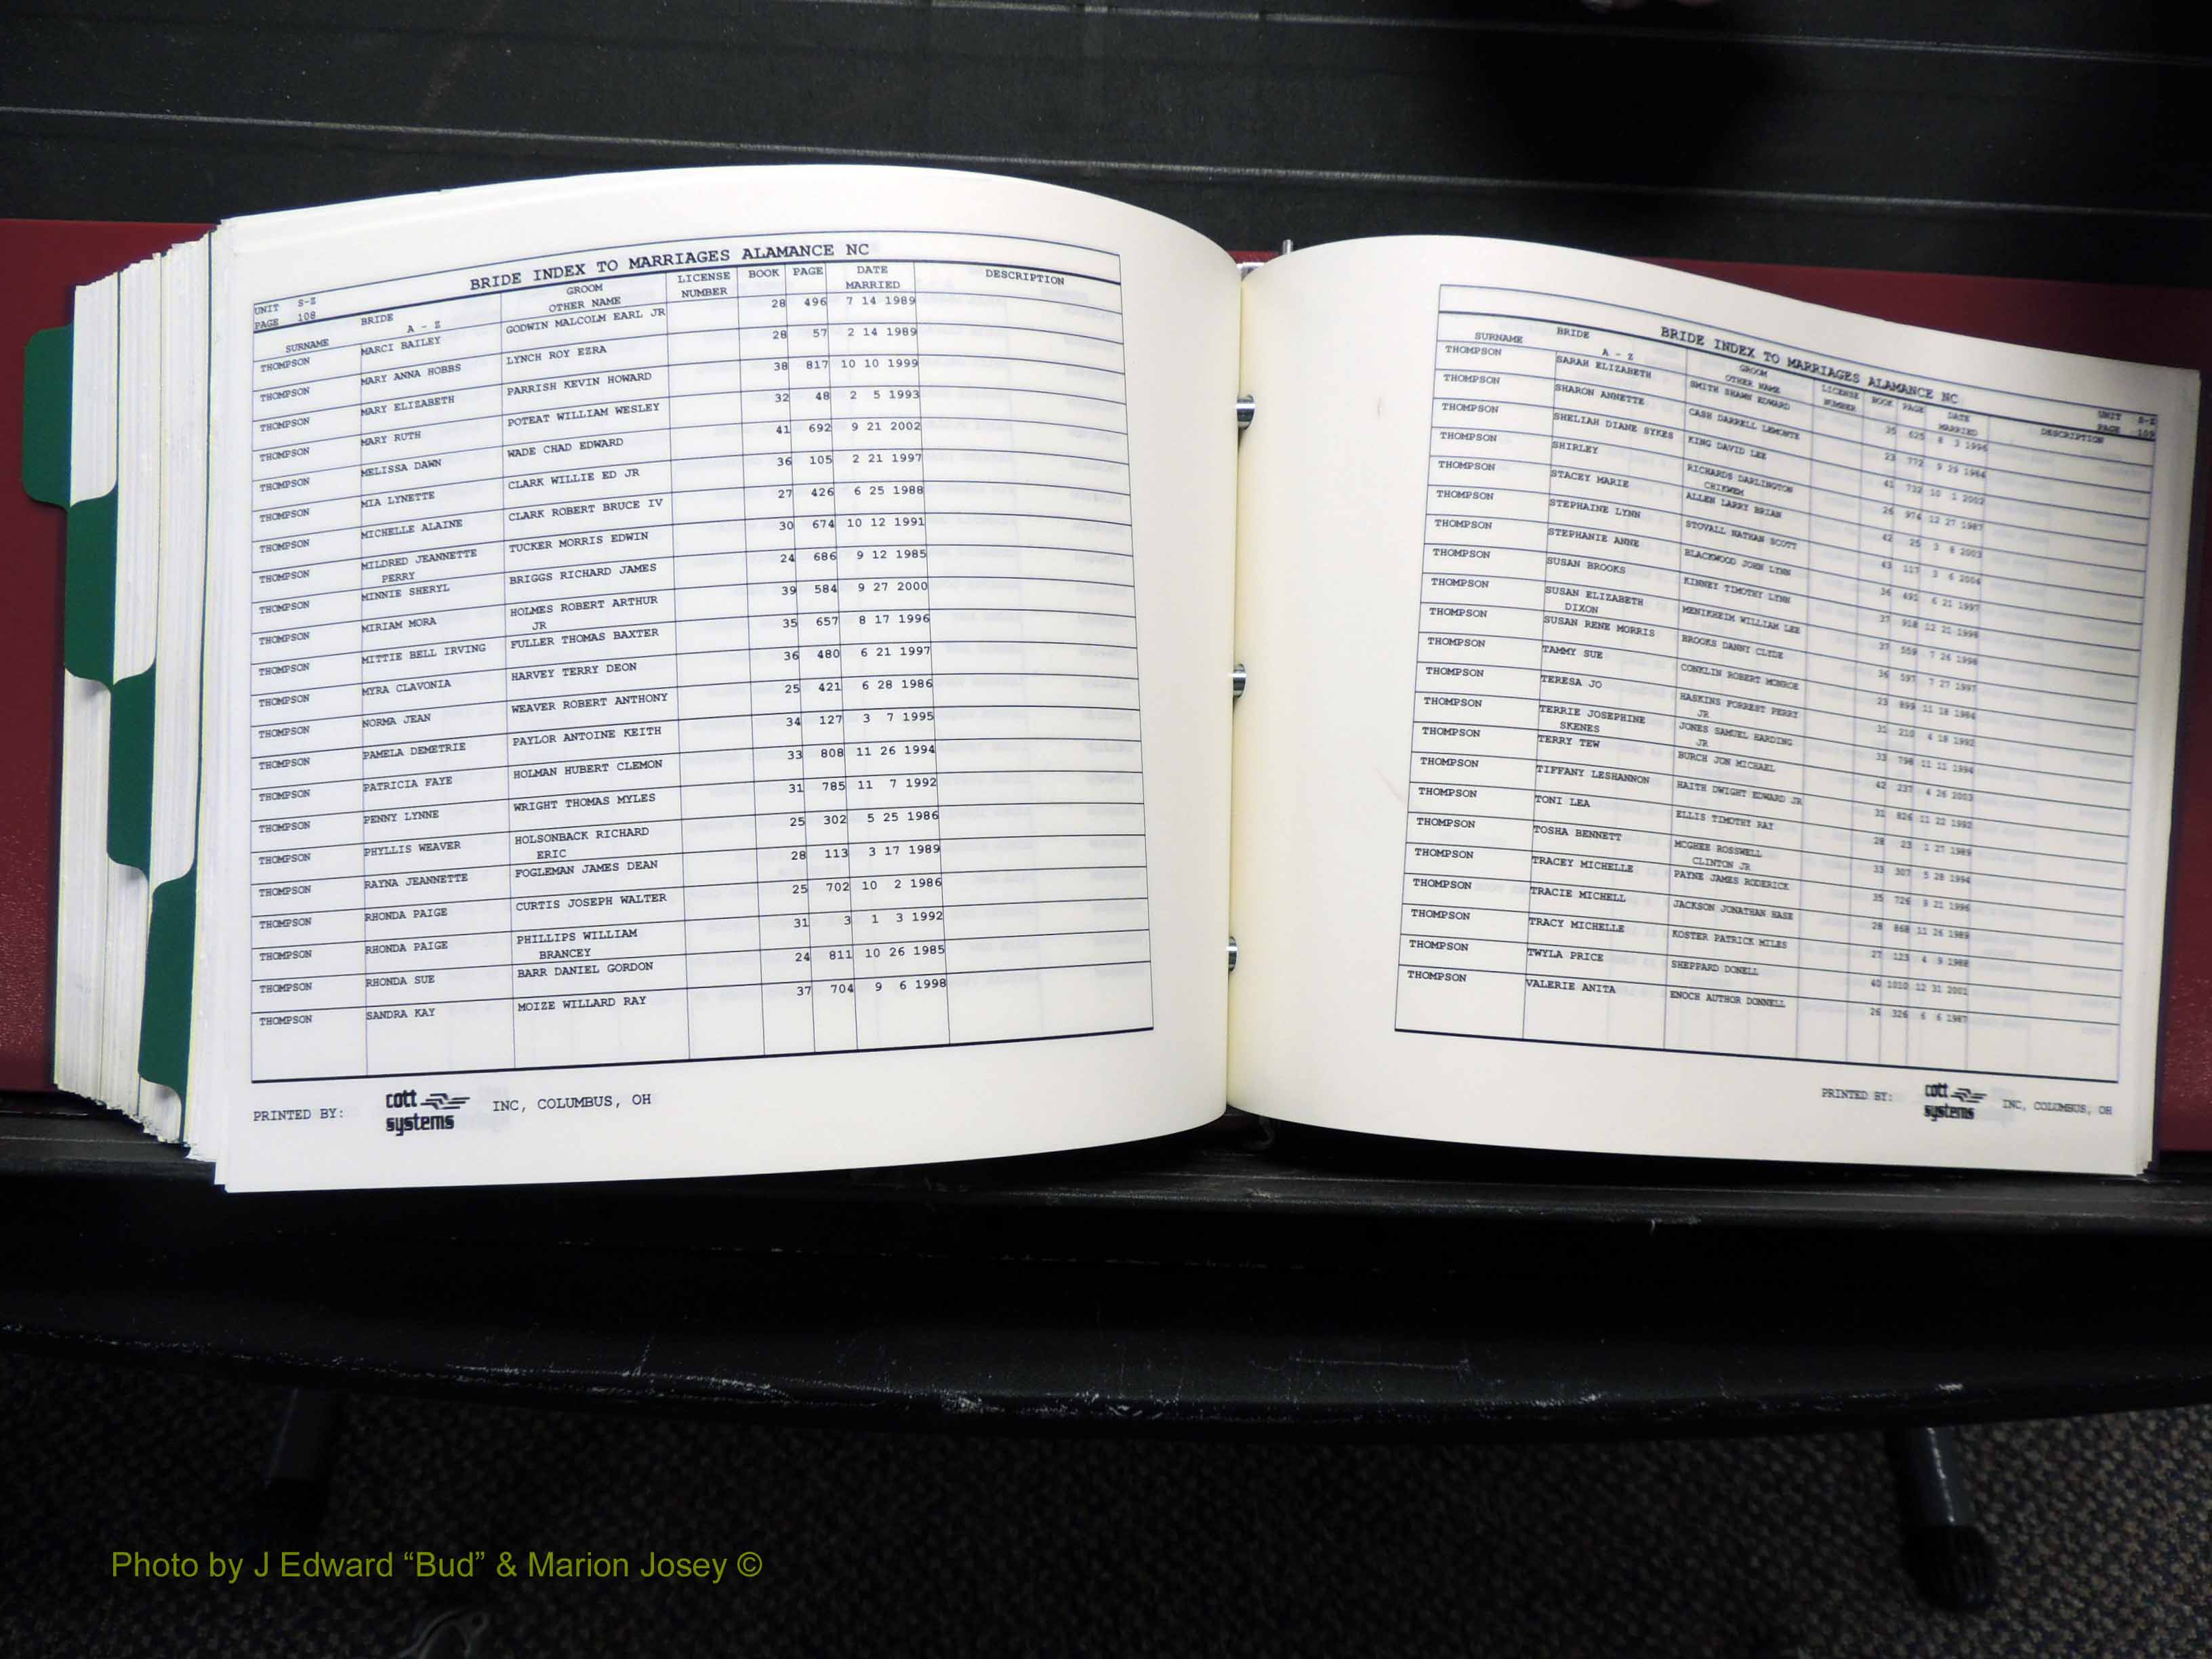 BRIDE INDEX TO MARRIAGES ALAMANCE NC
UNIT S-Z
PAGE 108
SURNAME BRIDE A - Z GROOM OTHER NAME LICENSE NUMBER BOOK PAGE DATE MARRIED DESCRIPTION
THOMPSON MARCI BAILEY GODWIN MALCOLM EARL JR 28 496 7 14 1989
THOMPSON MARY ANNA HOBBS LYNCH ROY EZRA 28 57 2 14 1989
THOMPSON MARY ELIZABETH PARRISH KEVIN HOWARD 38 817 10 10 1999
THOMPSON MARY RUTH POTEAT WILLIAM WESLEY 32 48 2 5 1993
THOMPSON MELISSA DAWN WADE CHAD EDWARD 41 692 9 21 2002
THOMPSON MIA LYNETTE CLARK WILLIE ED JR 36 105 2 21 1997
THOMPSON MICHELLE ALAINE CLARK ROBERT BRUCE IV 27 426 6 25 1988
THOMPSON MILDRED JEANNETTE TUCKER MORRIS EDWIN 30 674 10 12 1991
PERRY
THOMPSON MINNIE SHERYL BRIGGS RICHARD JAMES 24 686 9 12 1985
THOMPSON MIRIAM MORA HOLMES ROBERT ARTHUR 39 584 9 27 2000
JR
THOMPSON MITTIE BELL IRVING FULLER THOMAS BAXTER 35 657 8 17 1996
THOMPSON MYRA CLAVONIA HARVEY TERRY DEON 36 480 6 21 1997
THOMPSON NORMA JEAN WEAVER ROBERT ANTHONY 25 421 6 28 1986
THOMPSON PAMELA DEMETRIE PAYLOR ANTOINE KEITH 34 127 3 7 1995
THOMPSON PATRICIA FAYE HOLMAN HUBERT CLEMON 33 808 11 26 1994
THOMPSON PENNY LYNNE WRIGHT THOMAS MYLES 31 785 11 7 1992
THOMPSON PHYLLIS WEAVER HOLSONBACK RICHARD 25 302 5 25 1986
ERIC
THOMPSON RAYNA JEANNETTE FOGLEMAN JAMES DEAN 28 113 3 17 1989
THOMPSON RHONDA PAIGE CURTIS JOSEPH WALTER 25 702 10 2 1986
THOMPSON RHONDA PAIGE PHILLIPS WILLIAM 31 3 1 3 1992
BRANCEY
THOMPSON RHONDA SUE BARR DANIEL GORDON 24 811 10 26 1985
THOMPSON SANDRA KAY MOIZE WILLARD RAY 37 704 9 6 1998
PRINTED BY: cott systems INC, COLUMBUS, OH
BRIDE INDEX TO MARRIAGES ALAMANCE NC
UNIT S-Z
PAGE 109
SURNAME BRIDE A - Z GROOM OTHER NAME LICENSE NUMBER BOOK PAGE DATE MARRIED DESCRIPTION
THOMPSON SARAH ELIZABETH SMITH SHAWN EDWARD 35 625 8 3 1996
THOMPSON SHARON ANNETTE CASH DARRELL LEMONTE 23 772 9 29 1984
THOMPSON SHELIAH DIANE SYKES KING DAVID LEE 41 732 10 1 2002
THOMPSON SHIRLEY RICHARDS DARLINGTON 26 974 12 27 1987
CHIKWEM
THOMPSON STACEY MARIE ALLEN LARRY BRIAN 42 25 3 8 2003
THOMPSON STEPHAINE LYNN STOVALL NATHAN SCOTT 43 117 3 6 2004
THOMPSON STEPHANIE ANNE BLACKWOOD JOHN LYNN 36 491 6 21 1997
THOMPSON SUSAN BROOKS KINNEY TIMOTHY LYNN 37 918 12 21 1998
THOMPSON SUSAN ELIZABETH MENIKHEIM WILLIAM LEE 37 559 7 26 1998
DIXON
THOMPSON SUSAN RENE MORRIS BROOKS DANNY CLYDE 36 597 7 27 1997
THOMPSON TAMMY SUE CONKLIN ROBERT MONROE 23 899 11 18 1984
THOMPSON TERESA JO HASKINS FORREST PERRY 31 210 4 18 1992
JR
THOMPSON TERRIE JOSEPHINE JONES SAMUEL HARDING 33 798 11 11 1994
SKENES JR
THOMPSON TERRY TEW BURCH JON MICHAEL 42 237 4 26 2003
THOMPSON TIFFANY LESHANNON HAITH DWIGHT EDWARD JR 31 826 11 22 1992
THOMPSON TONI LEA ELLIS TIMOTHY RAY 28 23 1 27 1989
THOMPSON TOSHA BENNETT MCGHEE ROSSWELL 33 307 5 28 1994
CLINTON JR
THOMPSON TRACEY MICHELLE PAYNE JAMES RODERICK 35 726 9 21 1996
THOMPSON TRACIE MICHELL JACKSON JONATHAN HASE 28 868 11 26 1989
THOMPSON TRACY MICHELLE KOSTER PATRICK MILES 27 123 4 9 1988
THOMPSON TWYLA PRICE SHEPPARD DONELL 40 1010 12 31 2001
THOMPSON VALERIE ANITA ENOCH AUTHOR DONNELL 26 326 6 6 1987
PRINTED BY: cott systems INC, COLUMBUS, OH
Photo by J Edward “Bud” & Marion Josey ©